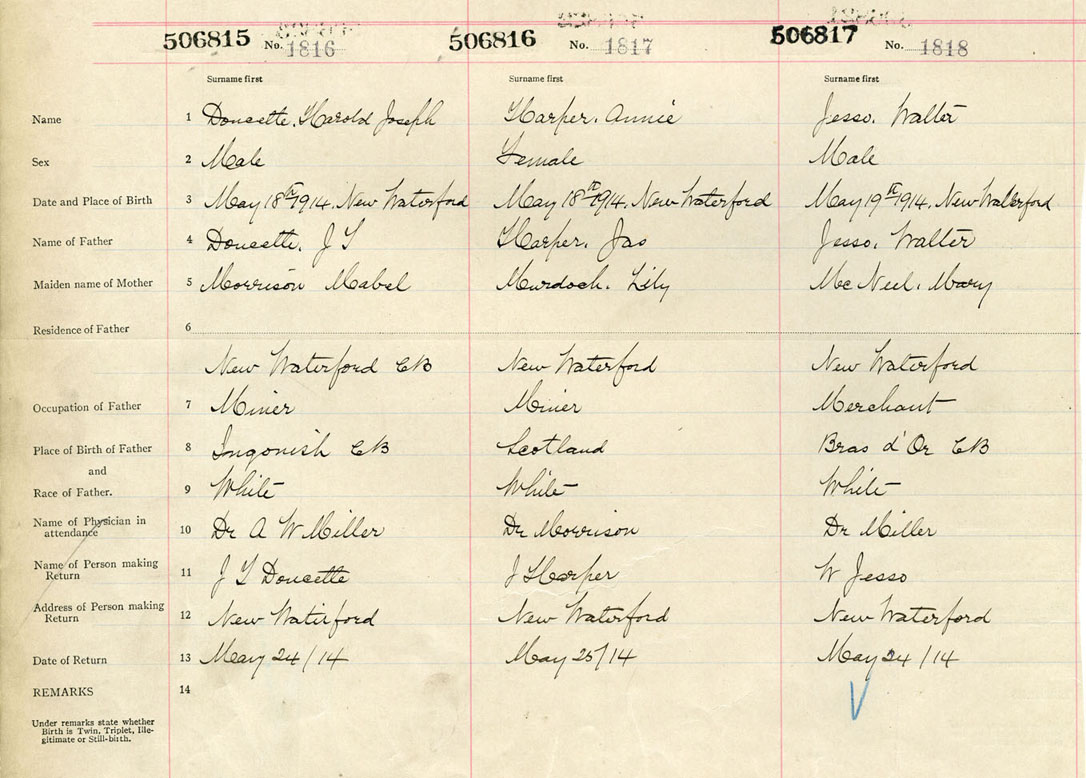 506815 No. 1816 506816 No. 1817 506817 No. 1818
Surname first Surname first Surname first
Name 1 Doucette, Harold Joseph Harper, Annie Jesso, Walter
Sex 2 Male Female Male
Date and Place of Birth 3 May 18th 1914. New Waterford May 18th 1914. New Waterford May 19th 1914. New Waterford
Name of Father 4 Doucette, J S Harper, Jas Jesso, Walter
Maiden name of Mother 5 Morrison Mabel Murdoch, Lily Mc Neil, Mary
Residence of Father 6
New Waterford CB New Waterford New Waterford
Occupation of Father 7 Miner Miner Merchant
Place of Birth of Father 8 Ingonish CB Scotland Bras d'Or CB
and
Race of Father. 9 White White White
Name of Physician in
attendance 10 Dr A W Miller Dr Morrison Dr Miller
Name of Person making
Return 11 J S Doucette J Harper W Jesso
Address of Person making
Return 12 New Waterford New Waterford New Waterford
Date of Return 13 May 24/14 May 25/14 May 24/14
REMARKS 14
Under remarks state whether
Birth is Twin, Triplet, Ille-
gitimate or Still-birth.